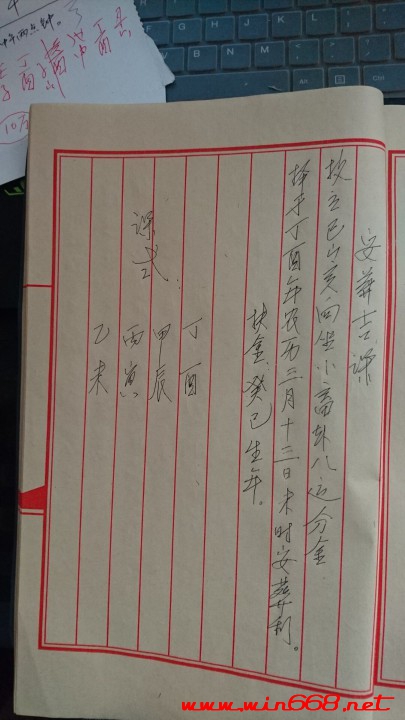 安葬吉课
坟立巳山亥向坐小畜卦八运分金
择于丁酉年农历三月十三日未时安葬利。
扶金癸巳生年。
课式
丁酉
甲辰
丙寅
乙未
www.win668.net